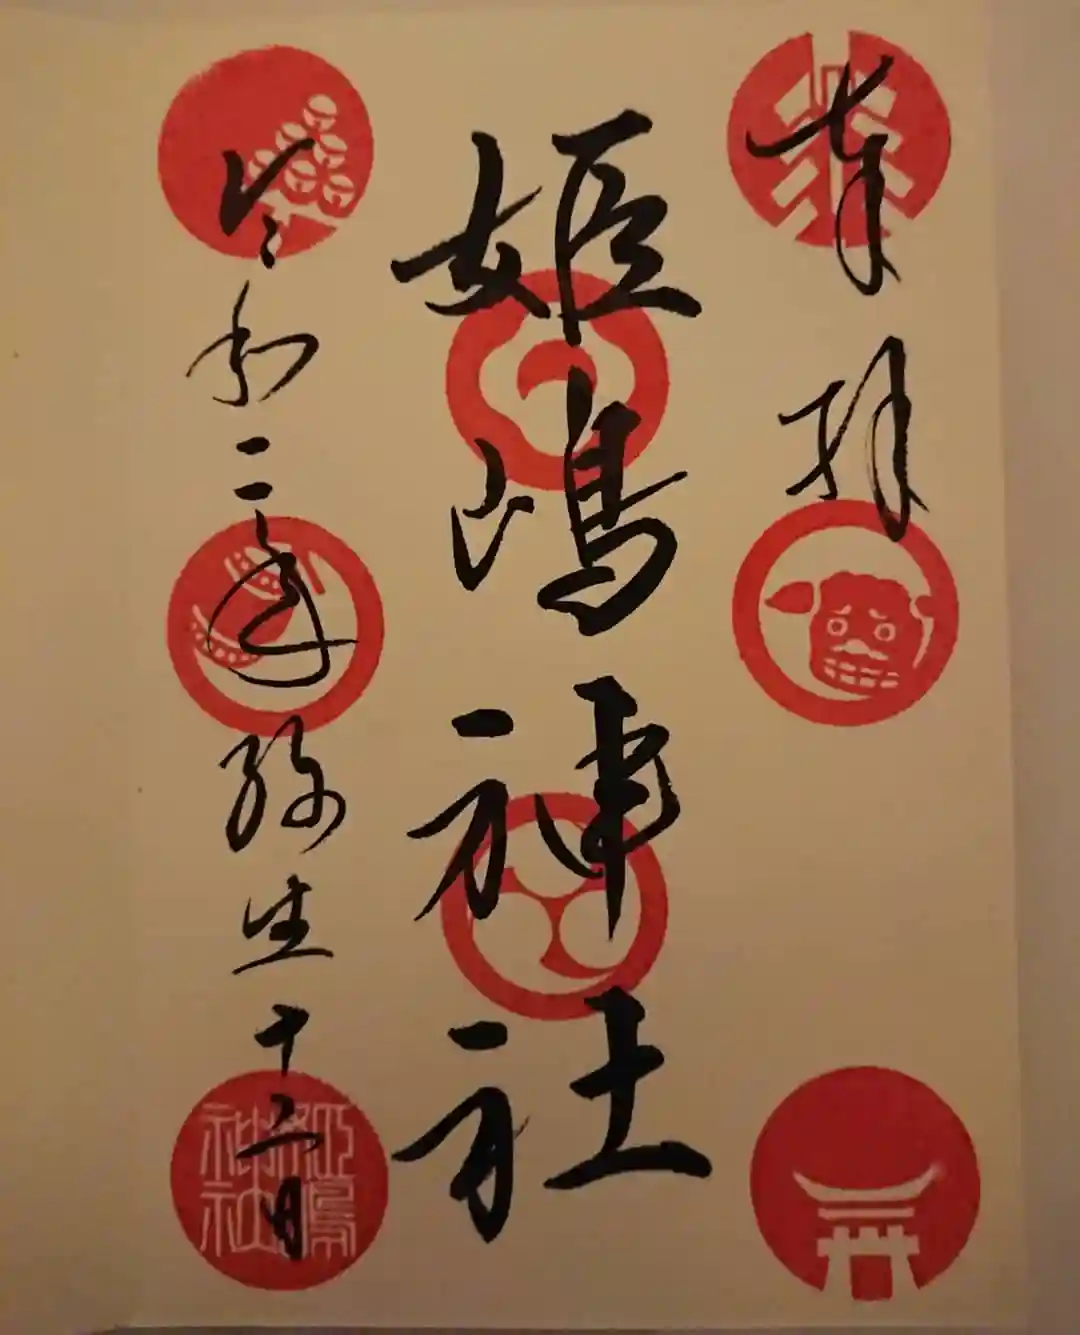 奉拝
姫嶋神社
令和二年弥生十六日
姫嶋
神社